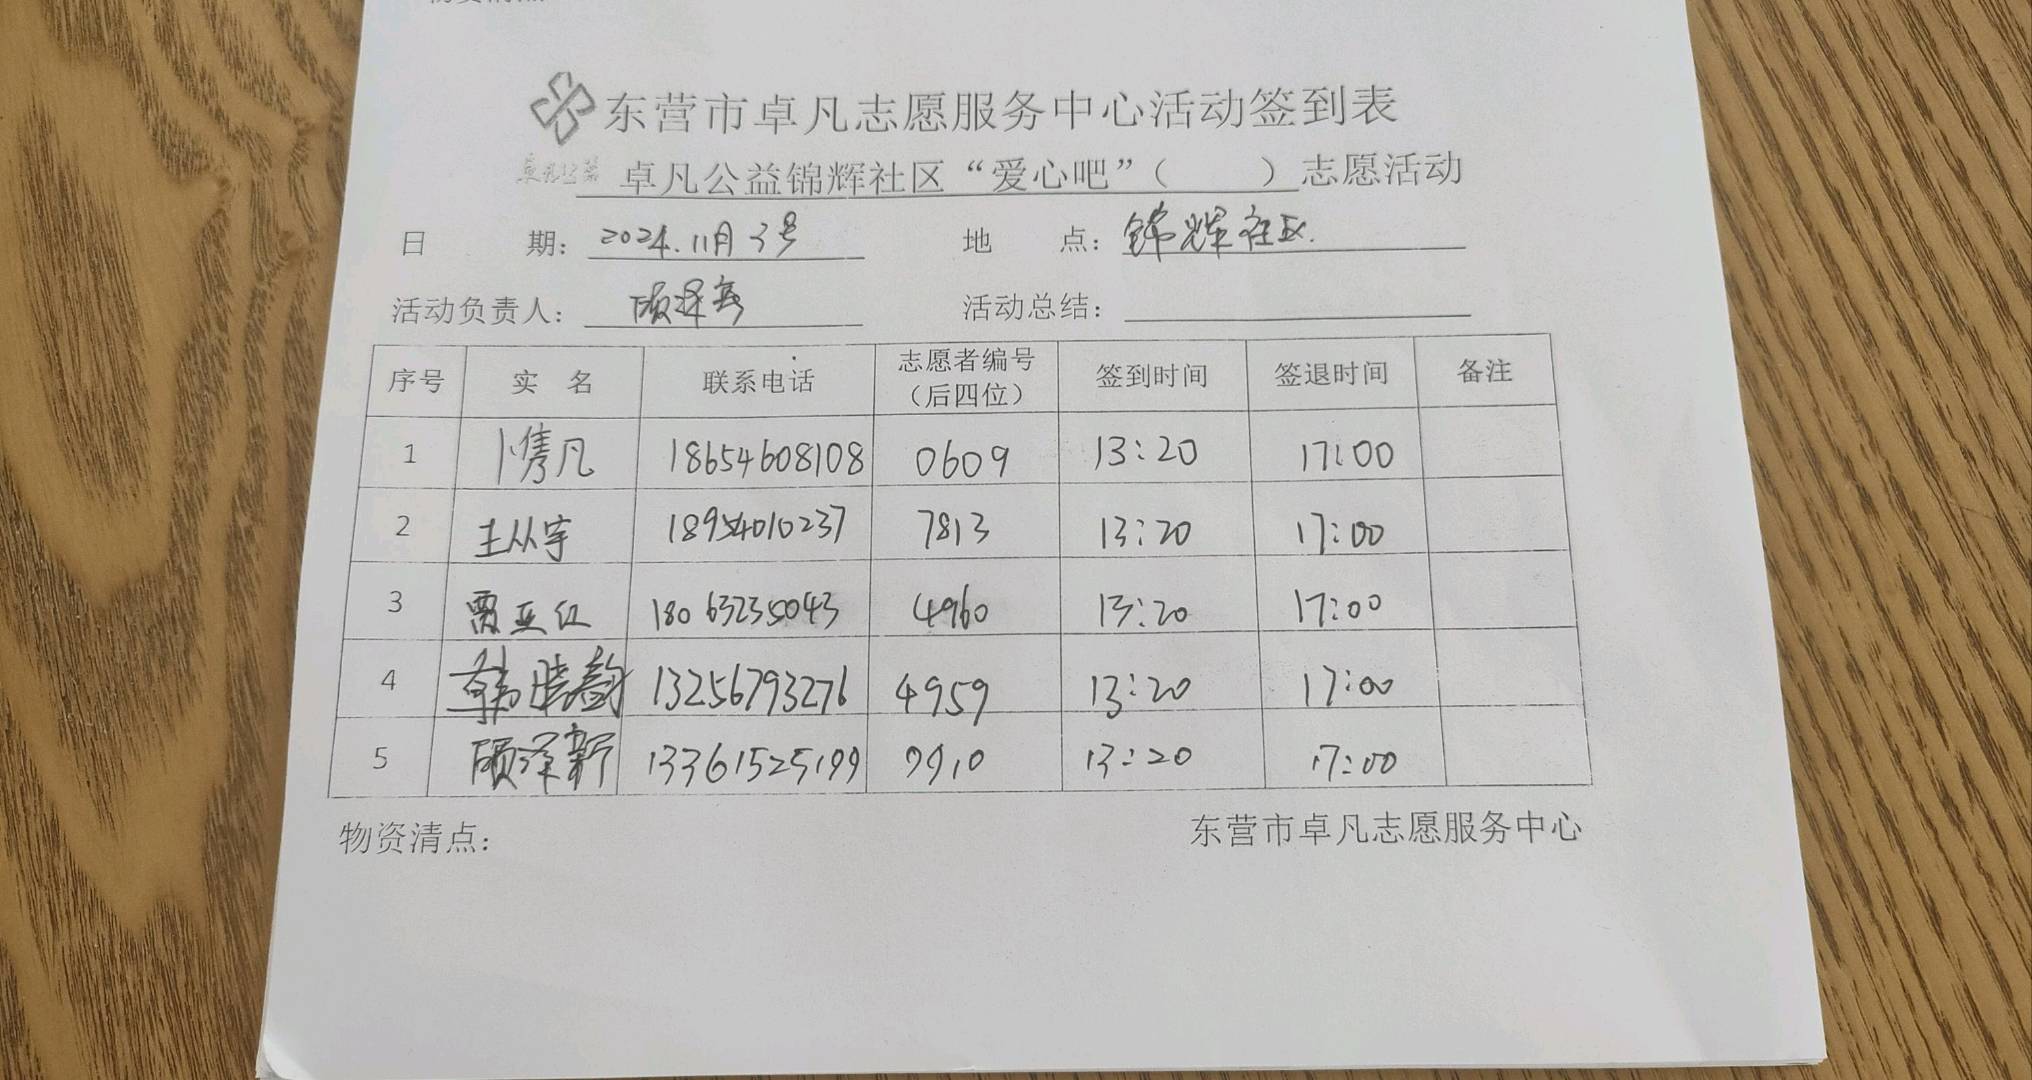 东营市卓凡志愿服务中心活动签到表
卓凡公益 卓凡公益锦辉社区“爱心吧”（ ）志愿活动
日 期： 2024.11月3号 地 点： 锦辉社区.
活动负责人： 活动总结：
序号 实 名 联系电话 志愿者编号（后四位） 签到时间 签退时间 备注
1 卜隽凡 18654608108 0609 13:20 17:00
2 王从宇 18954010237 7813 13:20 17:00
3 贾亚红 18063235043 4960 13:20 17:00
4 韩晓韵 13256793276 4959 13:20 17:00
5 顾泽新 13361525199 9910 13:20 17:00
物资清点： 东营市卓凡志愿服务中心